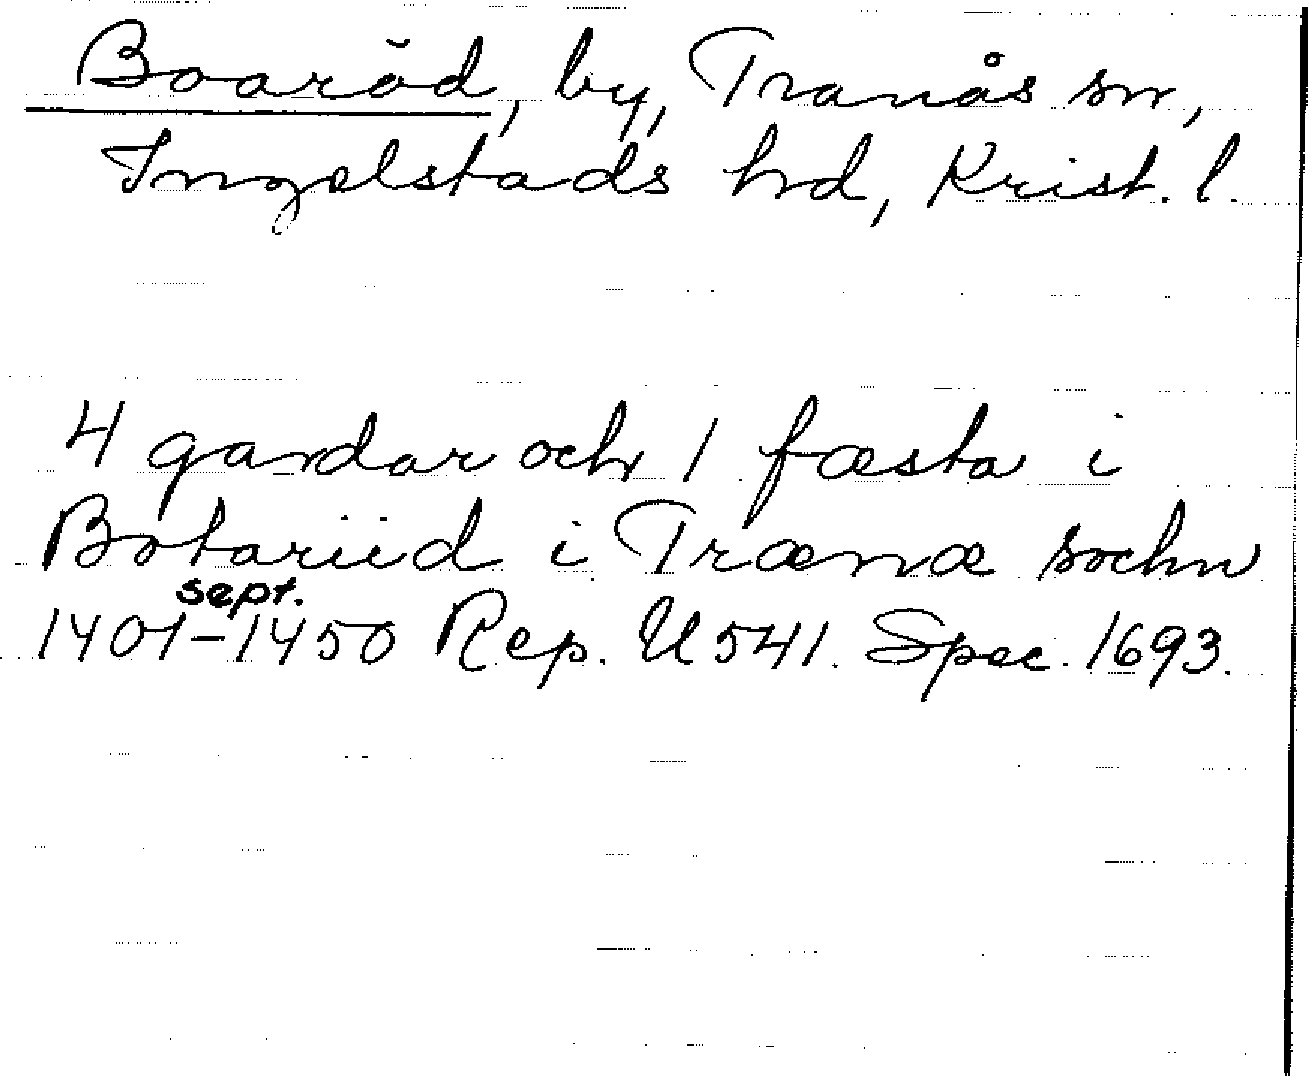 Boaröd, by, Tranås sn,
Ingelstads hrd, Krist. l.
4 gardar och 1 fæsta i
Botariid i Trænæ sochn
sept.
1401-1450 Rep. U 541. Spec. 1693.